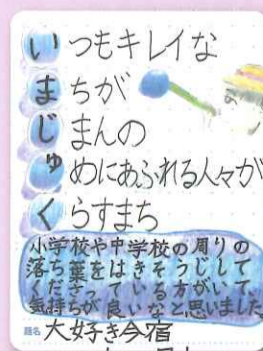 いつもキレイな
まちが
じまんの
ゅめにあふれる人々が
くらすまち
小学校や中学校の周りの
落ち葉をはきそうじして
気持ちが良いなと思いました
題名 大好き今宿